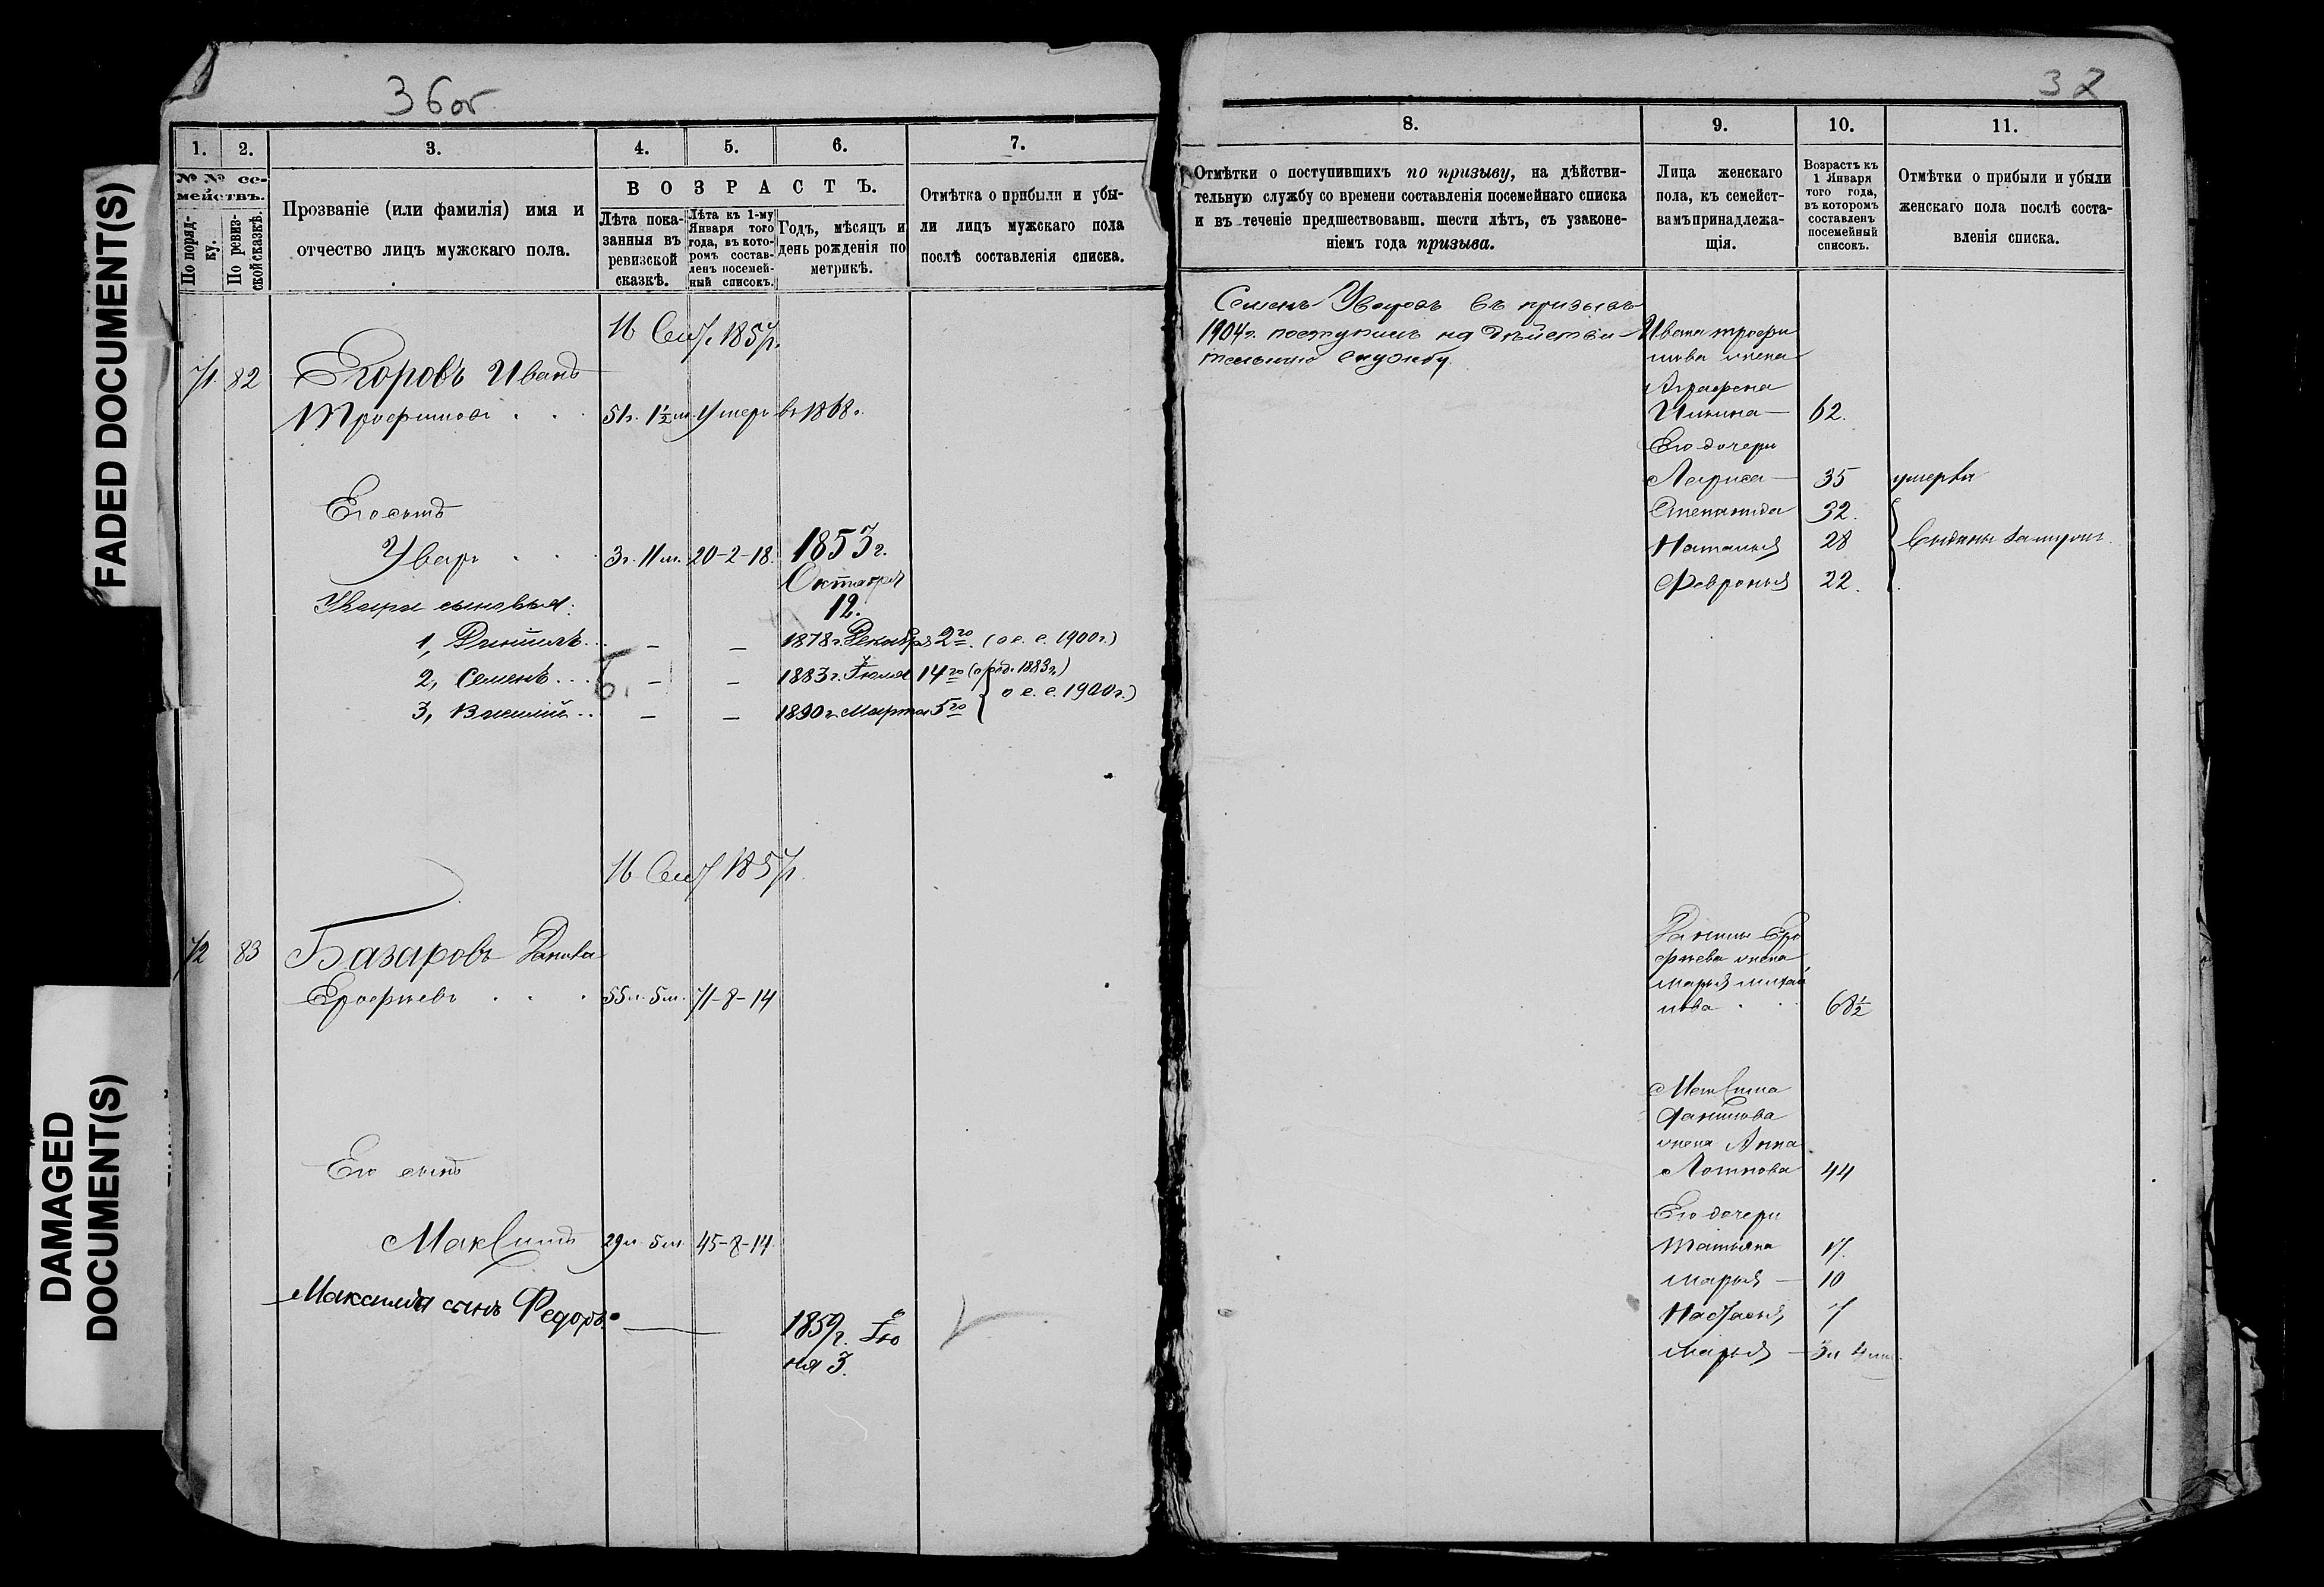 FADED DOCUMENT(S)
DAMAGED
DOCUMENT(S)
36об
1.
2.
3.
4.
5.
6.
7.
№ № се-
мействъ.
По поряд-
ку.
По ревиз-
ской сказкѣ.
Прозваніе (или фамилія) имя и
отчество лицъ мужскаго пола.
ВОЗРАСТЪ.
Лѣта пока-
занныя въ
ревизской
сказкѣ.
Лѣта къ 1-му
Января того
года, въ кото-
ромъ состав-
ленъ посемей-
ный списокъ.
Годъ, мѣсяцъ и
день рожденія по
метрикѣ.
Отмѣтка о прибыли и убы-
ли лицъ мужскаго пола
послѣ составленія списка.
16 1857г.
71. 82 Егоровъ Иванъ
Трофимовъ . . 51г. 1½ м. Умеръ въ 1868г.
Его сынъ
Уваръ . . 3г. 11м. 20-2-18. 1853г.
Октября
12.
Увара сыновья:
1, Даніилъ . . — — 1878г. Декабря 2го. (о с. с. 1900г.)
2, Семенъ . . — — 1883г. Іюля 14го (о род. 1883г.)
о с. с. 1900г.)
3, Василій . . — — 1890г. Марта 5го
16 1857г.
72 83 Базаровъ Данила
Ерофѣевъ . . . 55л. 5м. 71-8-14
Его сынъ
Максимъ 29л. 5м. 45-8-14
Максима сынъ Федоръ. — 1859г. Ію
ня 3.
37
8.
9.
10.
11.
Отмѣтки о поступившихъ по призыву, на дѣйстви-
тельную службу со времени составленія посемейнаго списка
и въ теченіе предшествовавш. шести лѣтъ, съ узаконе-
ніемъ года призыва.
Лица женскаго
пола, къ семейст-
вамъ принадлежа-
щія.
Возрастъ къ
1 Января
того года,
въ которомъ
составленъ
посемейный
списокъ.
Отмѣтки о прибыли и убыли
женскаго пола послѣ соста-
вленія списка.
Семенъ Уваровъ въ призывъ
1904г. поступилъ на дѣйстви-
тельную службу.
Ивана Трофи
мова жена
Аграфена
Ильина — 62.
Его дочери
Лариса — 35 умерла
Степанида 32.
Наталья 28 Выданы замужъ.
Февронья 22.
Данилы Еро
фѣева жена
Марья Михай
лова . . 68½
Максима
Данилова
жена Анна
Логинова 44
Его дочери
Татьяна 17.
Марья — 10
Настасья 7
Марья — 3л 4м